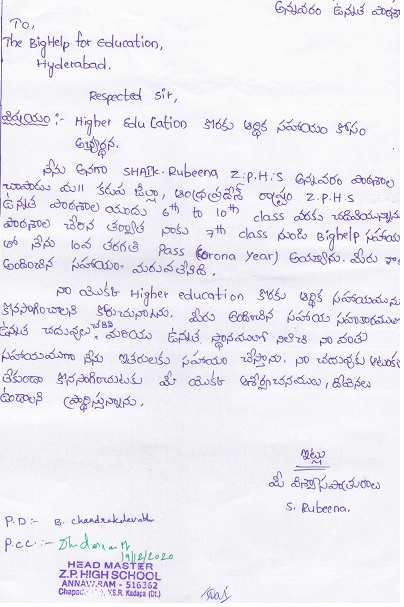 అన్నవరం ఉన్నత పాఠశాల
To,
The BigHelp for Education,
Hyderabad.
Respected Sir,
విషయం :- Higher Education కొరకు ఆర్థిక సహాయం కోసం
అభ్యర్థన.
నేను అనగా SHAIK. Rubeena Z.P.H.S అన్నవరం పాఠశాల
చాపాడు మ॥ కడప జిల్లా, ఆంధ్రప్రదేశ్ రాష్ట్రం Z.P.H.S
ఉన్నత పాఠశాల యందు 6th to 10th class వరకు చదివియున్నాను
పాఠశాల చేరిన తర్వాత నాకు 7th class నుండి BigHelp సహాయ
తో నేను 10వ తరగతి Pass (Corona Year) అయ్యాను. మీరు నాకు
అందించిన సహాయం మరువలేనిది.
నా యొక్క Higher education కొరకు ఆర్థిక సహాయమును
కొనసాగించాలని కోరుచున్నాను. మీరు అందించిన సహాయ సహకారములతో
ఉన్నత చదువులు చదివి మరియు ఉన్నత స్థానములో నిలిచి నా వంతు
సహాయముగా నేను ఇతరులకు సహాయం చేస్తాను. నా చదువుకు ఆటంకం
లేకుండా కొనసాగించుటకు మీ యొక్క ఆశీర్వచనములు, దీవెనలు
ఉండాలని ప్రార్థిస్తున్నాను.
ఇట్లు
మీ విశ్వాసపాత్రురాలు
S. Rubeena.
P.D :- B.
P.CC :-
19/12/2020
HEAD MASTER
Z.P. HIGH SCHOOL
ANNAVARAM - 516362
V.S.R. Kadapa (Dt.)